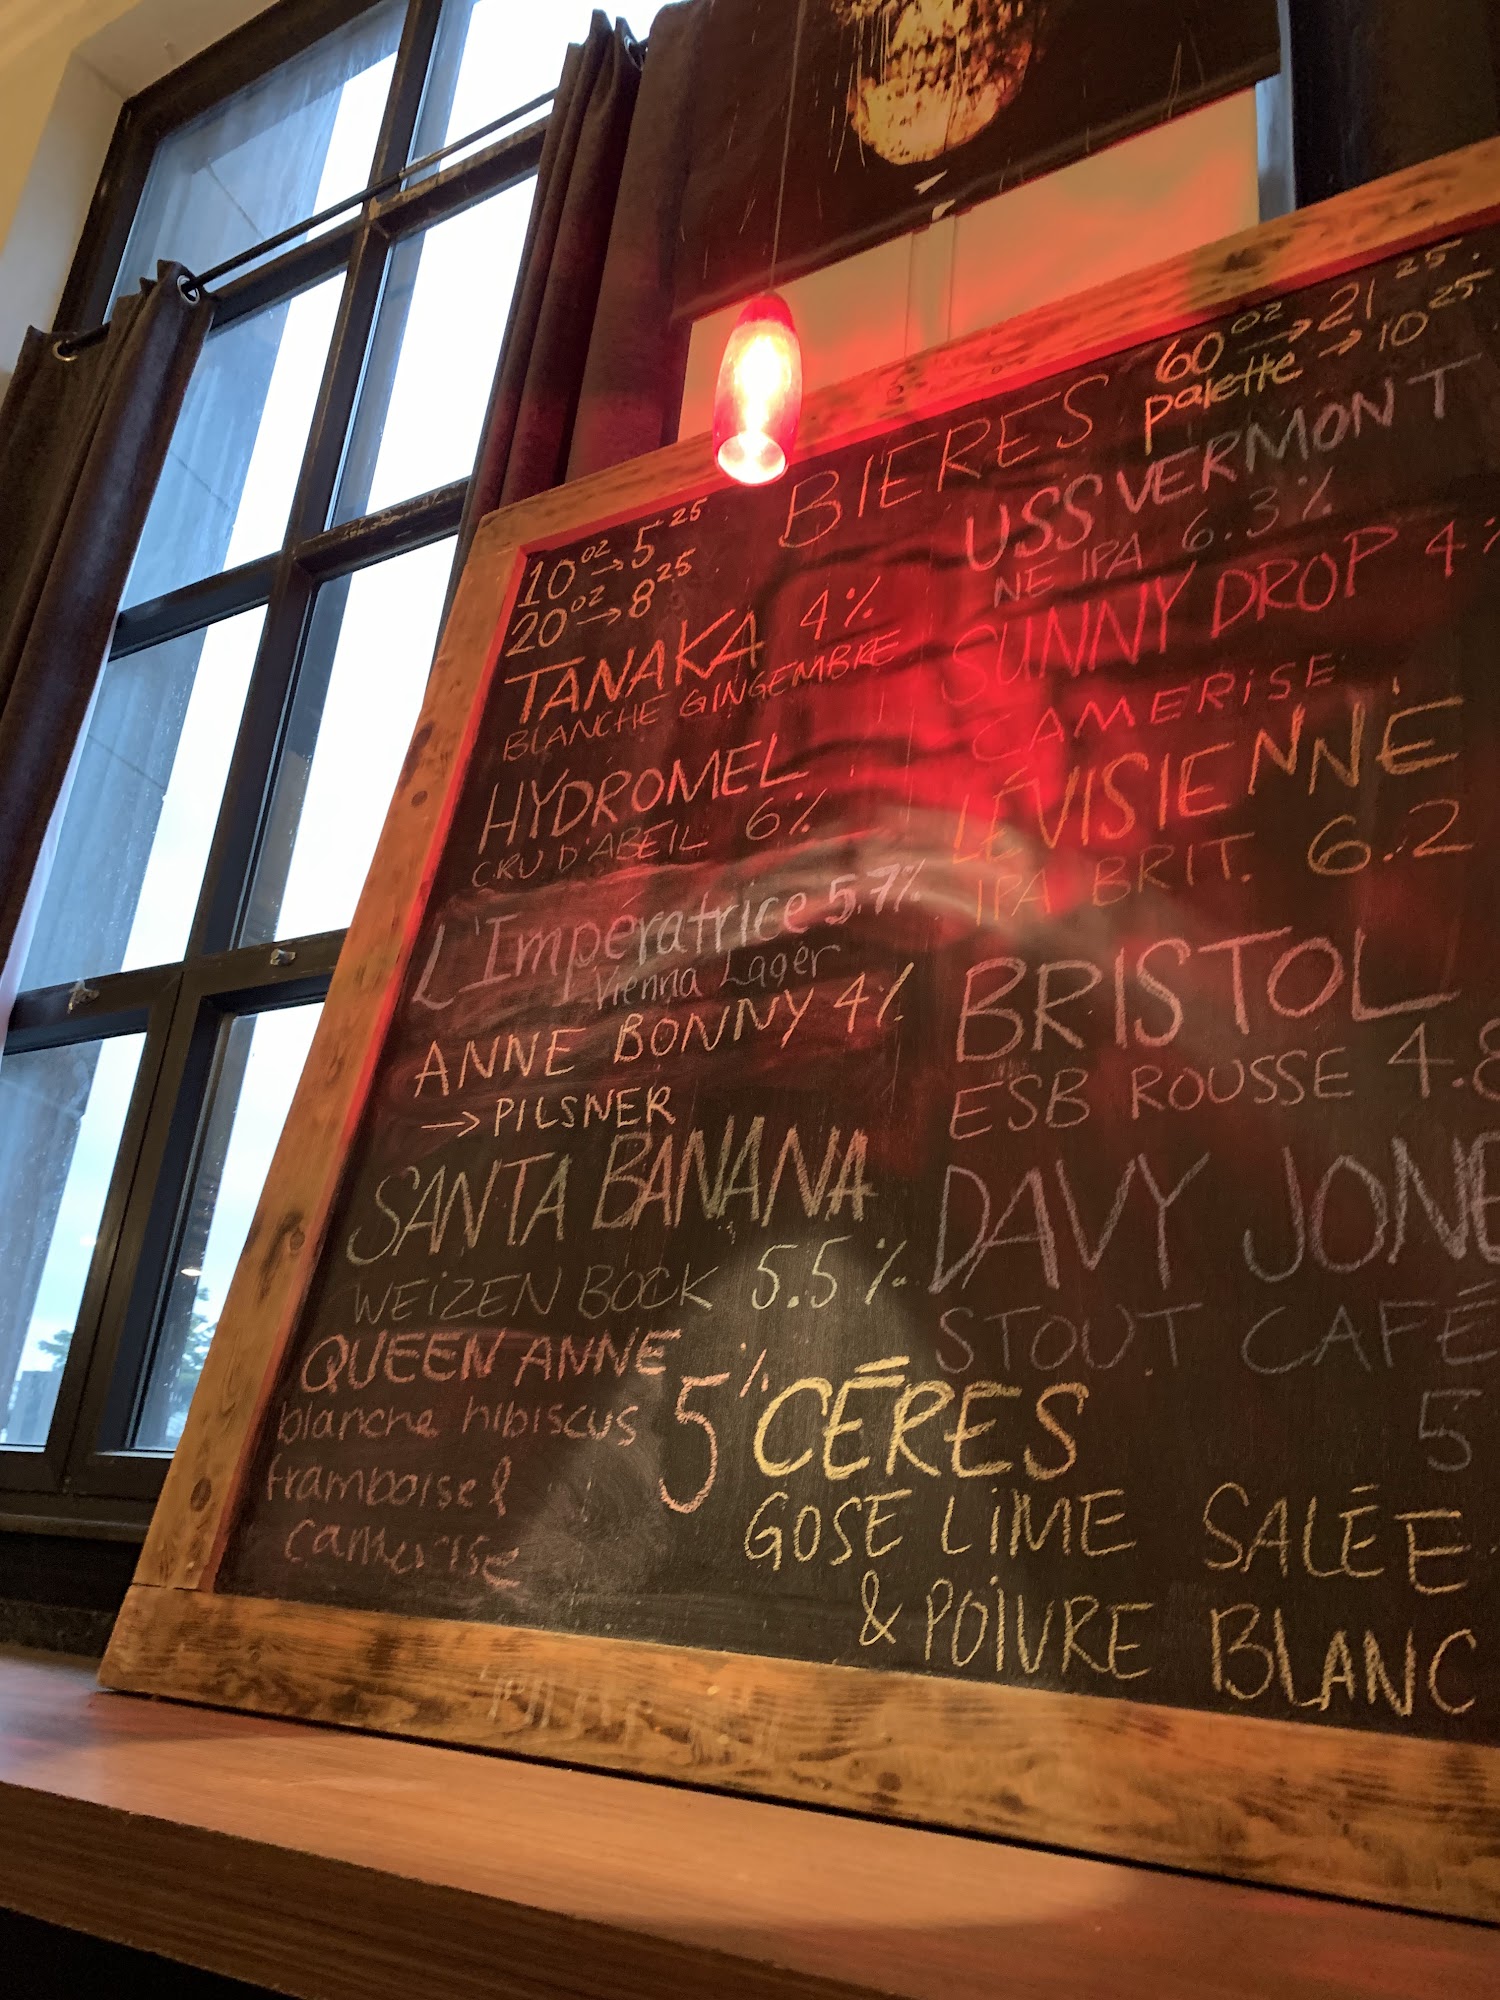 BIERES
10oz → 5 25
20oz → 8 25
60oz → 21 25.
palette → 10 25.
TANAKA 4%
BLANCHE GINGEMBRE
HYDROMEL
CRU D'ABEIL 6%
L'Impératrice 5.7%
Vienna Lager
ANNE BONNY 4%
→ PILSNER
SANTA BANANA
WEIZEN BOCK 5.5%
QUEEN ANNE
blanche hibiscus 5%
framboise &
camerise
USS VERMONT
NE IPA 6.3%
SUNNY DROP 4%
CAMERISE
LÉVISIENNE
IPA BRIT. 6.2
BRISTOL
ESB ROUSSE 4.8
DAVY JONE
STOUT CAFÉ
5
CÉRES
GOSE LIME SALÉE
& POIVRE BLANC